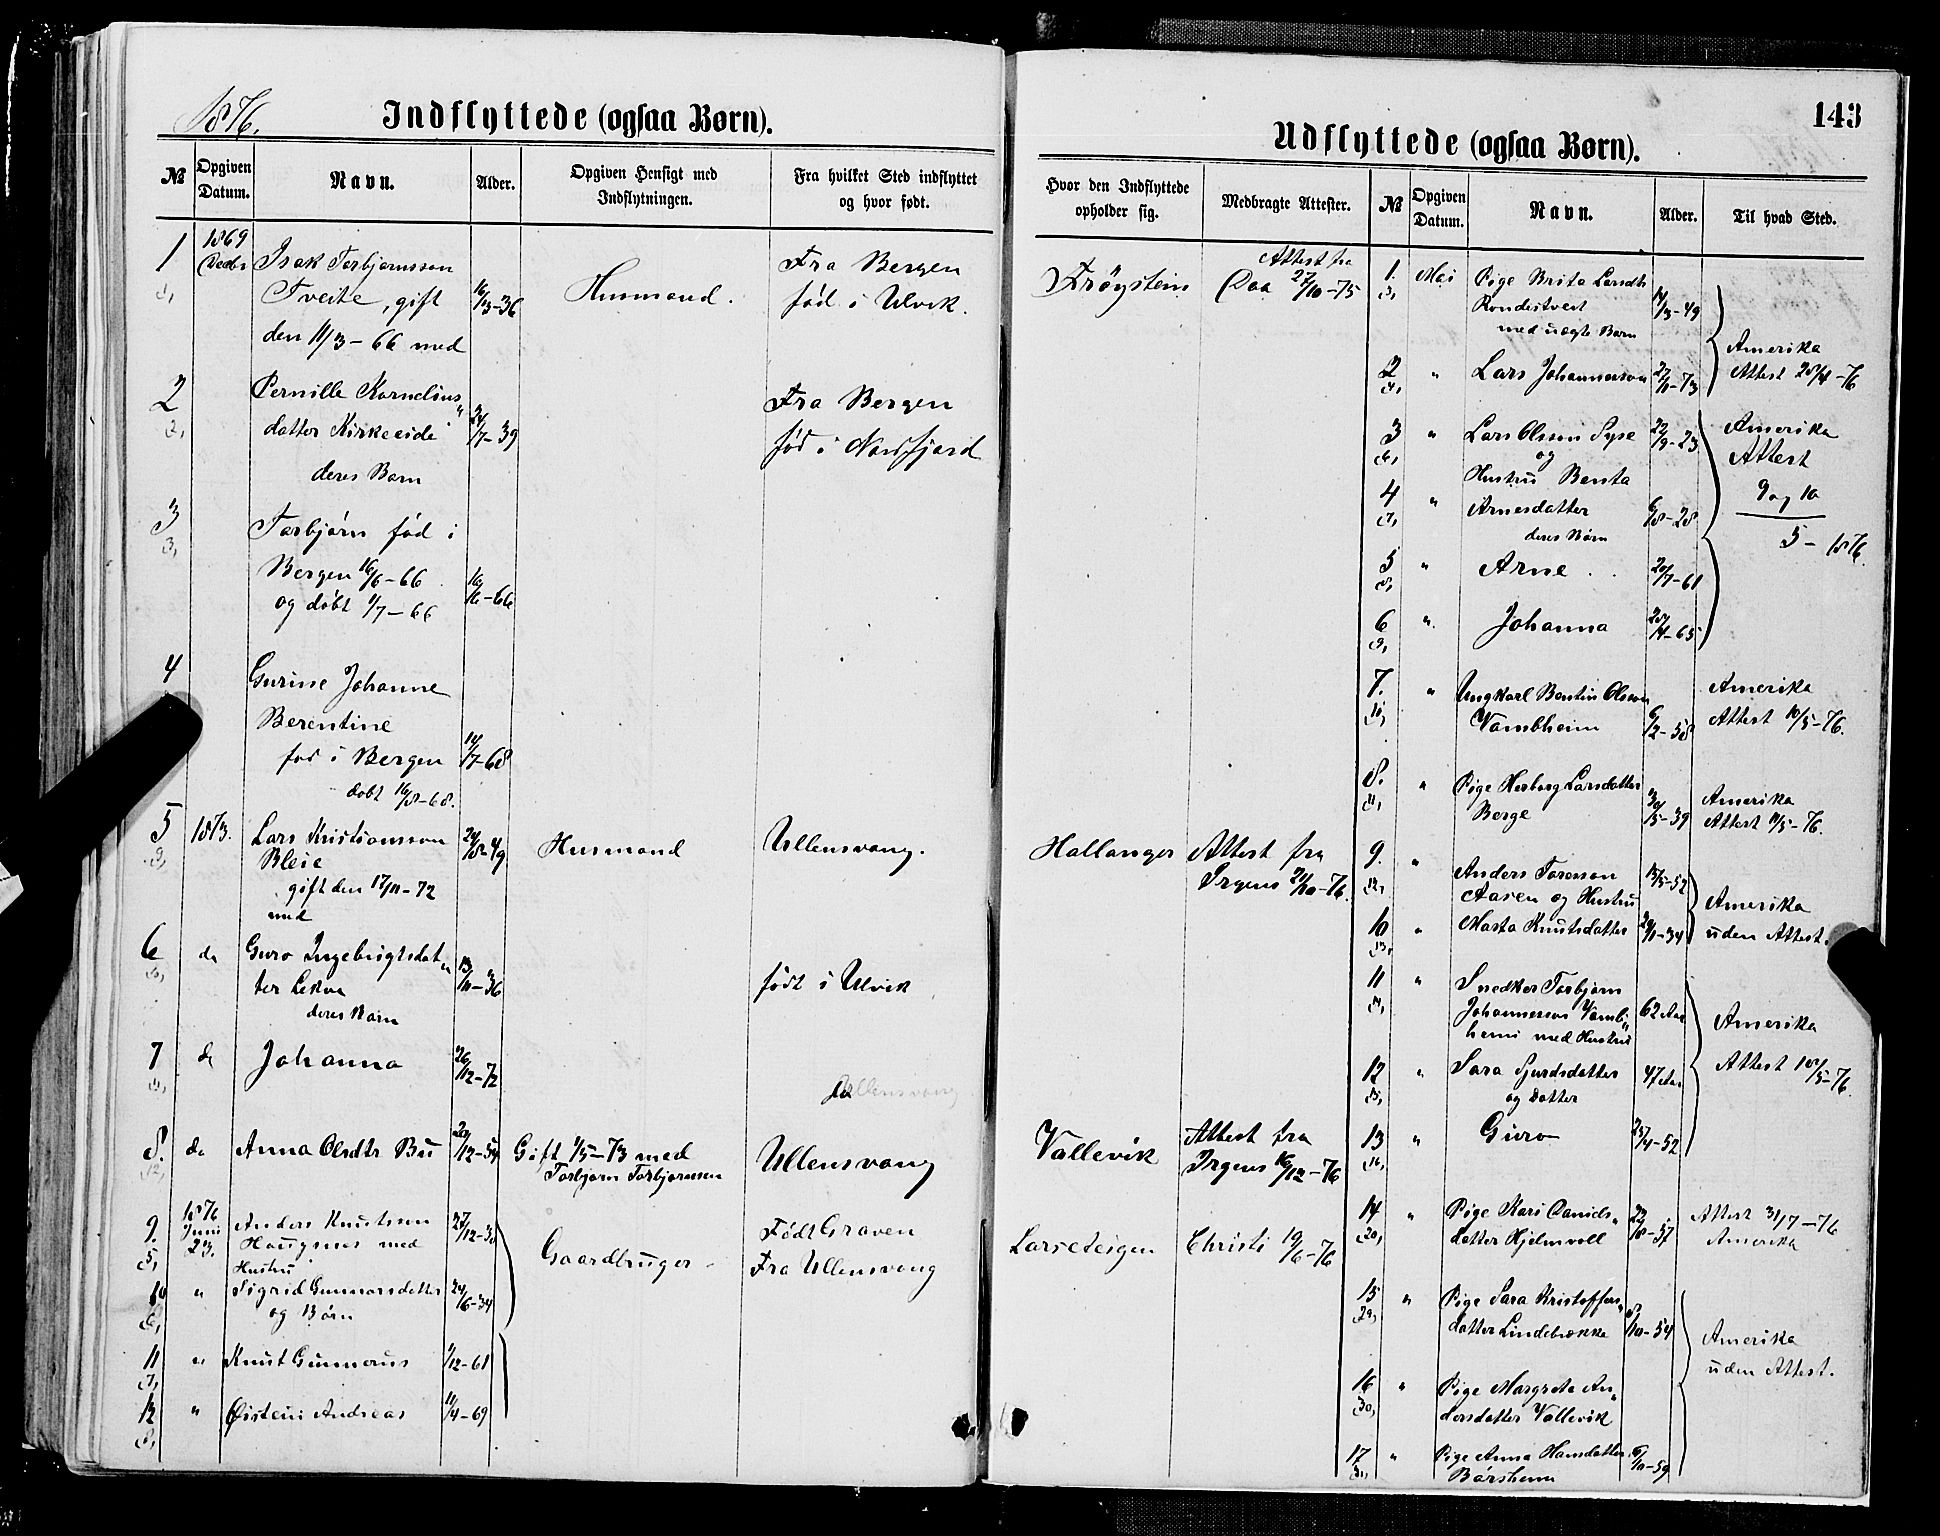 1876.
Indflyttede (ogsaa Børn).
№
Opgiven Datum.
Navn.
Alder.
Opgiven Hensigt med Indflytningen.
Fra hvilket Sted indflyttet og hvor født.
1
1869
Isak Torbjørnsson
Tveite, gift
den 11/3 - 66 med
16/3-36
Husmand.
Fra Bergen
fød i Ulvik.
2
Pernille Kornelius
datter Kirkeeide
deres Barn
24/7-39
Fra Bergen
fød i Nordfjord
3
Torbjørn fød i
Bergen 16/6-66
og døbt 1/7-66
16/6-66
4
Gurine Johanne
Berentine
fød i Bergen
døbt 16/8-68.
14/7-68
5
1873.
Lars Kristiansson
Bleie
gift den 17/11-72
med
24/8-49
Husmand
Ullensvang.
6
do
Guro Ingebrigtsdat
ter Lekve
deres Barn
13/11-36
født i Ulvik
7
do
Johanna
26/12-72
Ullensvang
8.
do
Anna Olsdtr Bu
20/12-54
Gift 1/5-73 med
Torbjørn Torbjørnssen
Ullensvang
9.
1876
Juni
23.
Anders Knutsson
Haugsnes med
Hustru
27/12-30
Gaardbruger
Født Graven
Fra Ullensvang
10
"
Sigrid Gunnarsdatter
og Børn
24/6-34
11
"
Knut Gunnerus
1/12-61
12
"
Øistein Andreas
11/4-69
143
Udflyttede (ogsaa Børn).
Hvor den Indflyttede opholder sig.
Medbragte Attester.
№
Opgiven Datum.
Navn.
Alder.
Til hvad Sted.
Frøystein
Attest fra
Daa 27/10-75
Hallanger
Attest fra
Irgens 21/10-76.
Vallevik
Attest fra
Irgens 16/12-76
Larseteigen
Christi 19/6-76
1.
Mai
Pige Brita Larsdtr
Rondestveit
med uægte Barn
14/3-49
2
"
Lars Johannesson
27/11-73
Amerika
Attest 28/4-76
3
"
Lars Olsson Syse
og
22/9-23
Hustru Benta
4
"
Arnesdatter
deres Børn
6/8-28
5
"
Arne
20/7-61
6
"
Johanna
28/4-65
Amerika
Attest
9 og 10
5 - 1876.
7.
"
Ungkarl Bentin Olsson
Vambheim
6/2-58
Amerika
Attest 10/5-76.
8.
"
Pige Herborg Larsdatter
Berge
30/5-39
Amerika
Attest 11/5-76.
9.
"
Anders Toresson
Aasen og Hustru
13/5-52
10
"
Marta Knutsdatter
20/11-34
Amerika
uden Attest.
11
"
Snedker Torbjørn
Johannesson Vamb
heim med Hustru
62 Aar
12
"
Sara Sjurdsdatter
og Datter
47 Aar
13
"
Guro
25/4-52
Amerika
Attest 18/5-76
14
"
Pige Kari Daniels
datter Hjelmvoll
22/8-57
Attest 31/7-76
Amerika
15
"
Pige Sara Kristoffers
datter Lindebrekke
8/10-54
16
"
Pige Margreta An
dersdatter Vallevik
17
"
Pige Anna Hansdatter
Børsheim
6/11-59
Amerika
uden Attest.